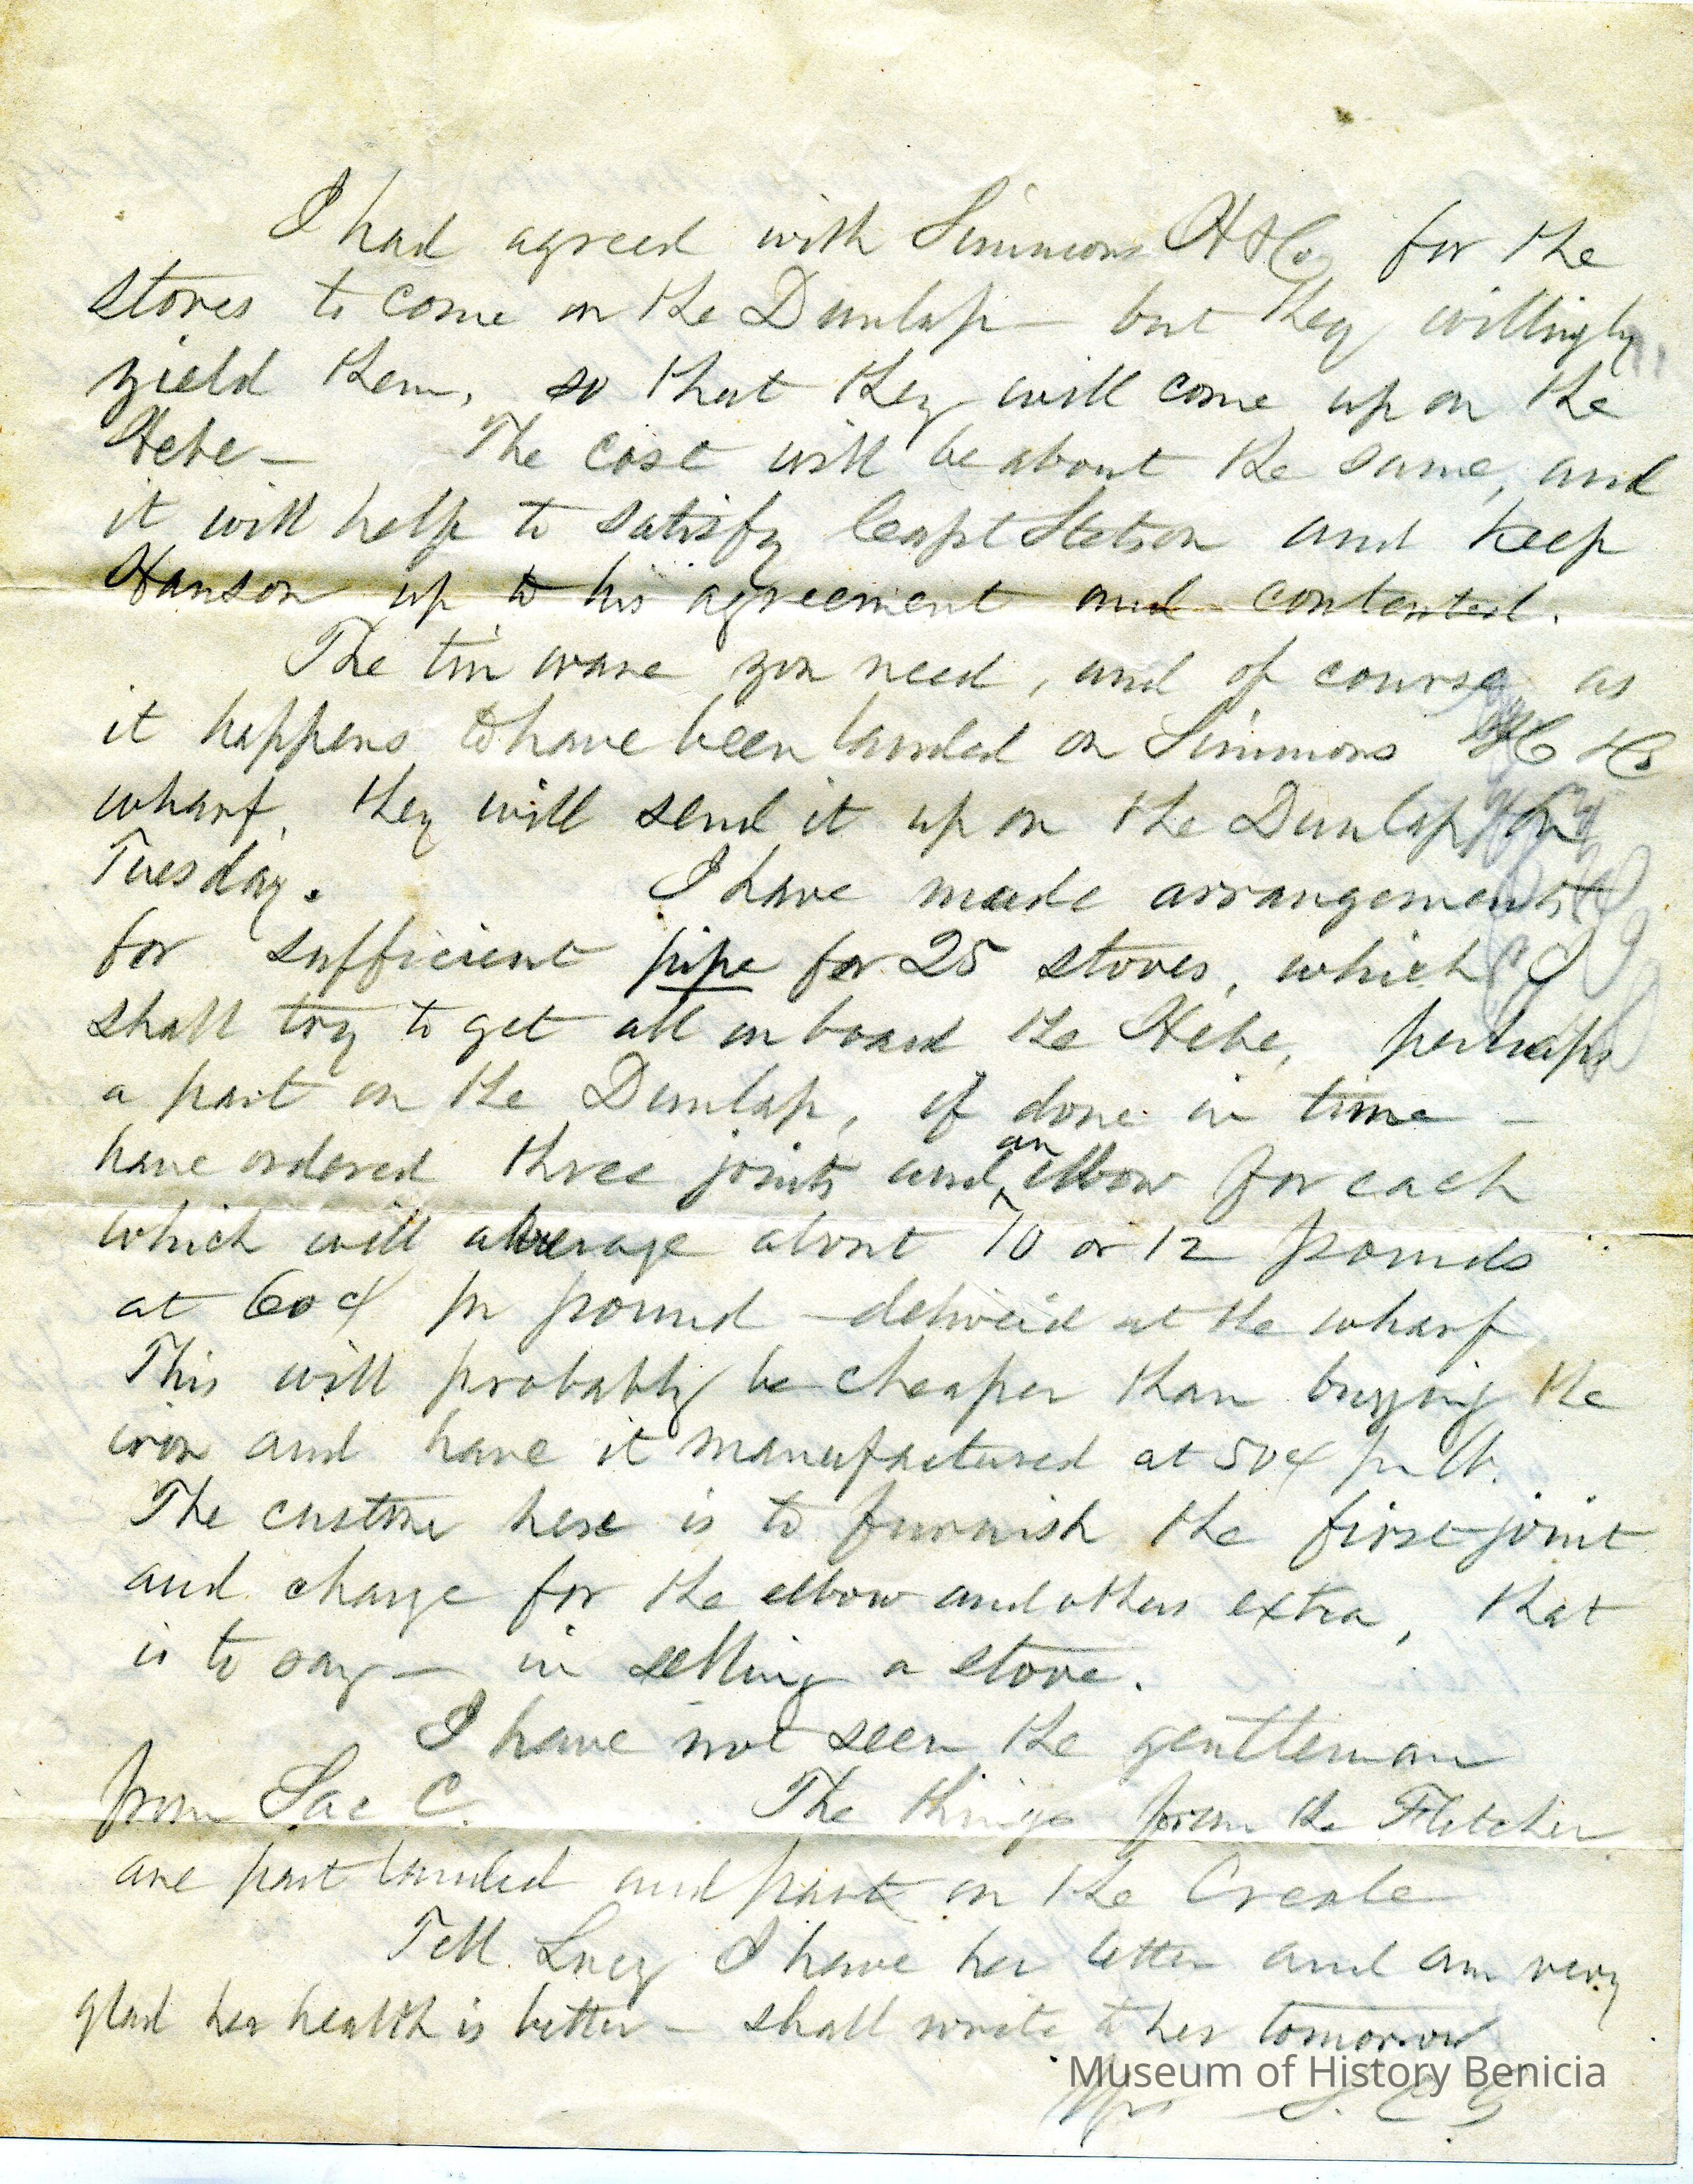 I had agreed with Simmons H & Co for the
stoves to come on the Dunlap — but they willingly
yield them, so that they will come up on the
Hebe — The cost will be about the same, and
it will help to satisfy Capt Stetson and keep
Hanson up to his agreement and contented.
The tin ware you need, and of course, as
it happens to have been landed on Simmons H & Co
wharf, they will send it up on the Dunlap on
Tuesday. I have made arrangements
for sufficient pipe for 25 stoves, which I
shall try to get all on board the Hebe, perhaps
a part on the Dunlap, if done in time —
have ordered three joints and an elbow for each
which will average about 10 or 12 pounds
at 60¢ pr pound — deliveid at the wharf
This will probably be cheaper than buying the
iron and have it manufactured at 50¢ pr lb.
The custom here is to furnish the first joint
and charge for the elbow and others extra, that
is to say — in selling a stove.
I have not seen the gentleman
from Sac C. The things from the Fletcher
are part landed and part on the Creole
Tell Lucy I have her letter and am very
glad her health is better — shall write to her tomorrow
Museum of History Benicia
Yrs S. C. G